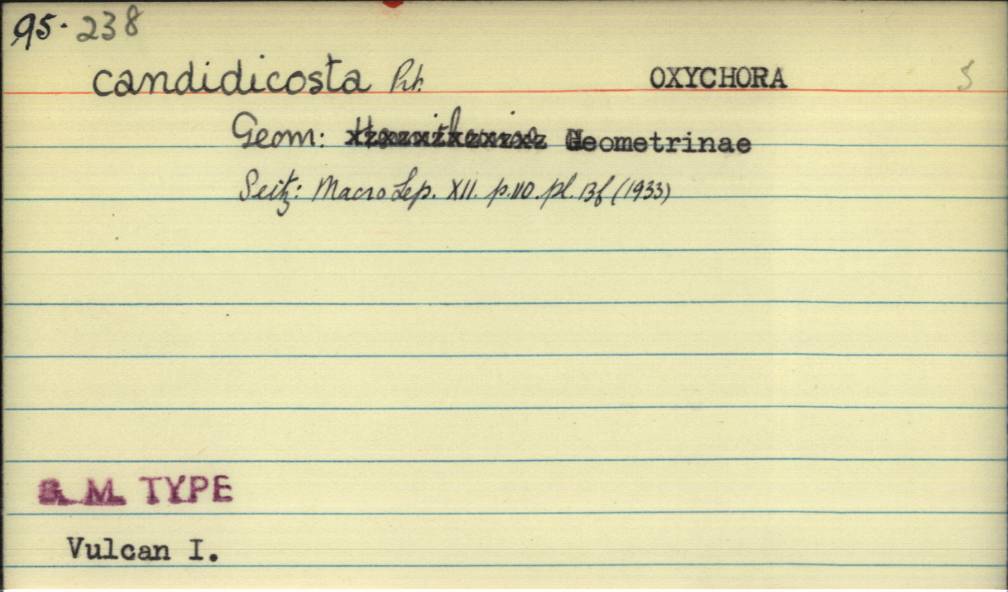 95.238
candidicosta Prt. OXYCHORA 5
Geom: Geometrinae
Seitz: Macro Lep. XII. p.110. pl. 13f (1933)
B. M. TYPE
Vulcan I.